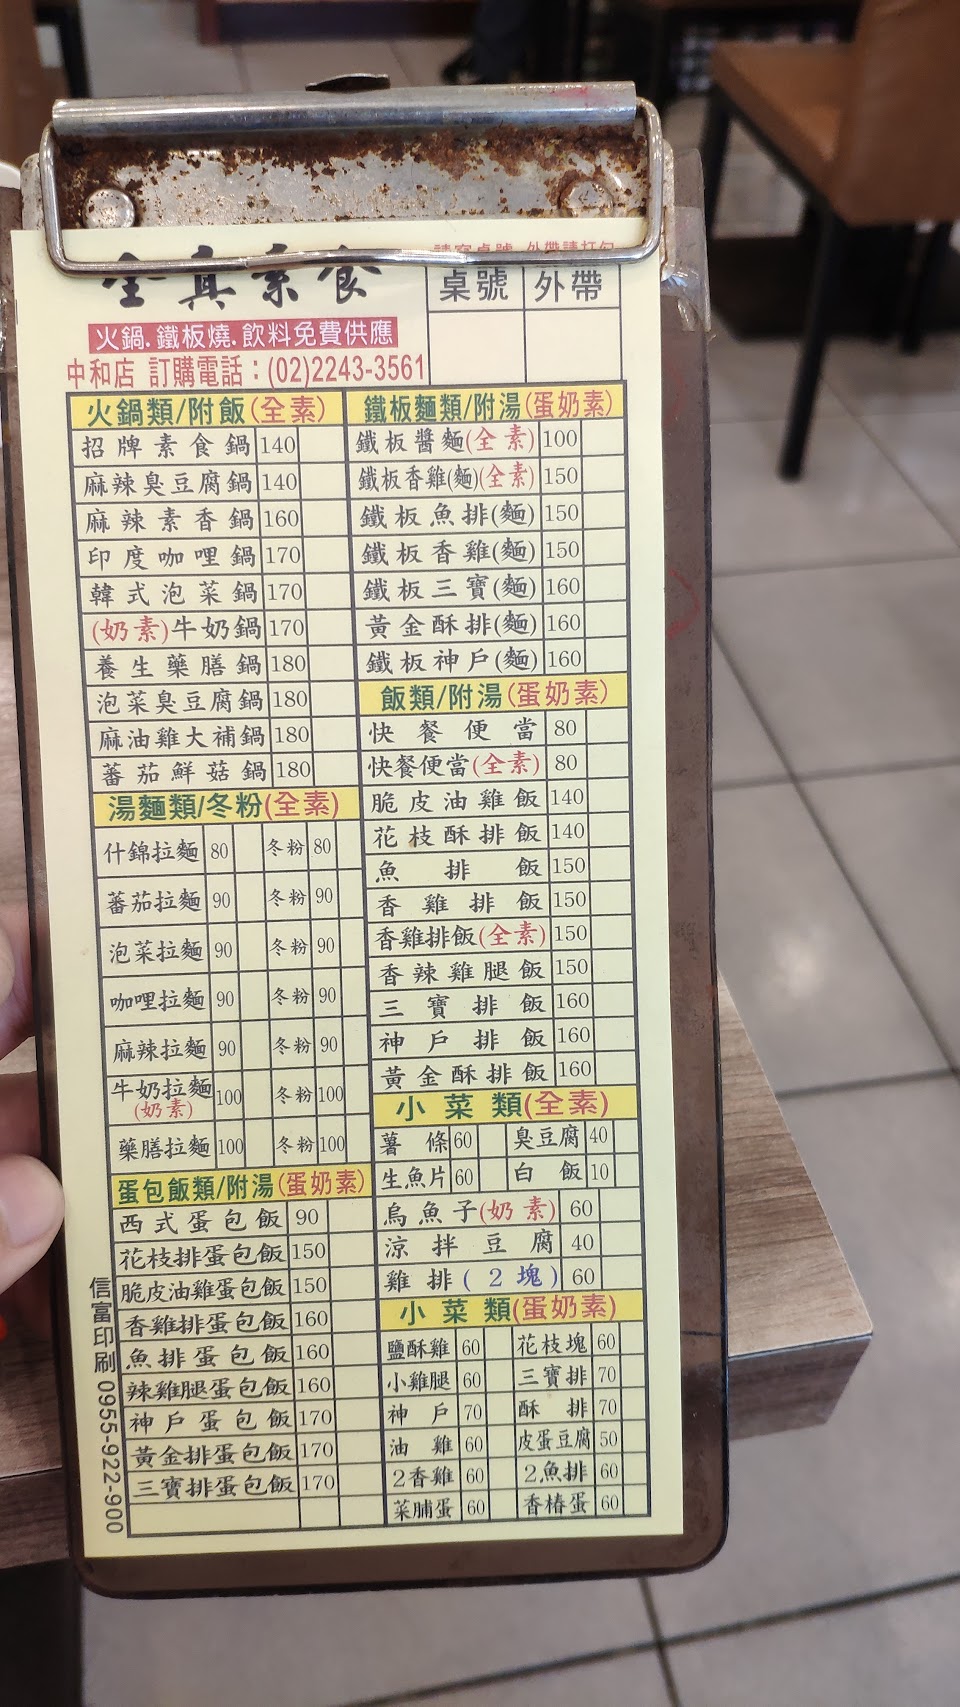 全真素食
請寫桌號 外帶請打勾
桌號 外帶
火鍋.鐵板燒.飲料免費供應
中和店 訂購電話：(02)2243-3561
火鍋類/附飯(全素)
招牌素食鍋 140
麻辣臭豆腐鍋 140
麻辣素香鍋 160
印度咖哩鍋 170
韓式泡菜鍋 170
(奶素)牛奶鍋 170
養生藥膳鍋 180
泡菜臭豆腐鍋 180
麻油雞大補鍋 180
蕃茄鮮菇鍋 180
湯麵類/冬粉(全素)
什錦拉麵 80 冬粉 80
蕃茄拉麵 90 冬粉 90
泡菜拉麵 90 冬粉 90
咖哩拉麵 90 冬粉 90
麻辣拉麵 90 冬粉 90
牛奶拉麵 100 冬粉 100
(奶素)
藥膳拉麵 100 冬粉 100
蛋包飯類/附湯(蛋奶素)
西式蛋包飯 90
花枝排蛋包飯 150
脆皮油雞蛋包飯 150
香雞排蛋包飯 160
魚排蛋包飯 160
辣雞腿蛋包飯 160
神戶蛋包飯 170
黃金排蛋包飯 170
三寶排蛋包飯 170
鐵板麵類/附湯(蛋奶素)
鐵板醬麵(全素) 100
鐵板香雞(麵)(全素) 150
鐵板魚排(麵) 150
鐵板香雞(麵) 150
鐵板三寶(麵) 160
黃金酥排(麵) 160
鐵板神戶(麵) 160
飯類/附湯(蛋奶素)
快餐便當 80
快餐便當(全素) 80
脆皮油雞飯 140
花枝酥排飯 140
魚排飯 150
香雞排飯 150
香雞排飯(全素) 150
香辣雞腿飯 150
三寶排飯 160
神戶排飯 160
黃金酥排飯 160
小菜類(全素)
薯條 60 臭豆腐 40
生魚片 60 白飯 10
烏魚子(奶素) 60
涼拌豆腐 40
雞排(2塊) 60
小菜類(蛋奶素)
鹽酥雞 60 花枝塊 60
小雞腿 60 三寶排 70
神戶 70 酥排 70
油雞 60 皮蛋豆腐 50
2香雞 60 2魚排 60
菜脯蛋 60 香椿蛋 60
信富印刷 0955-922-900